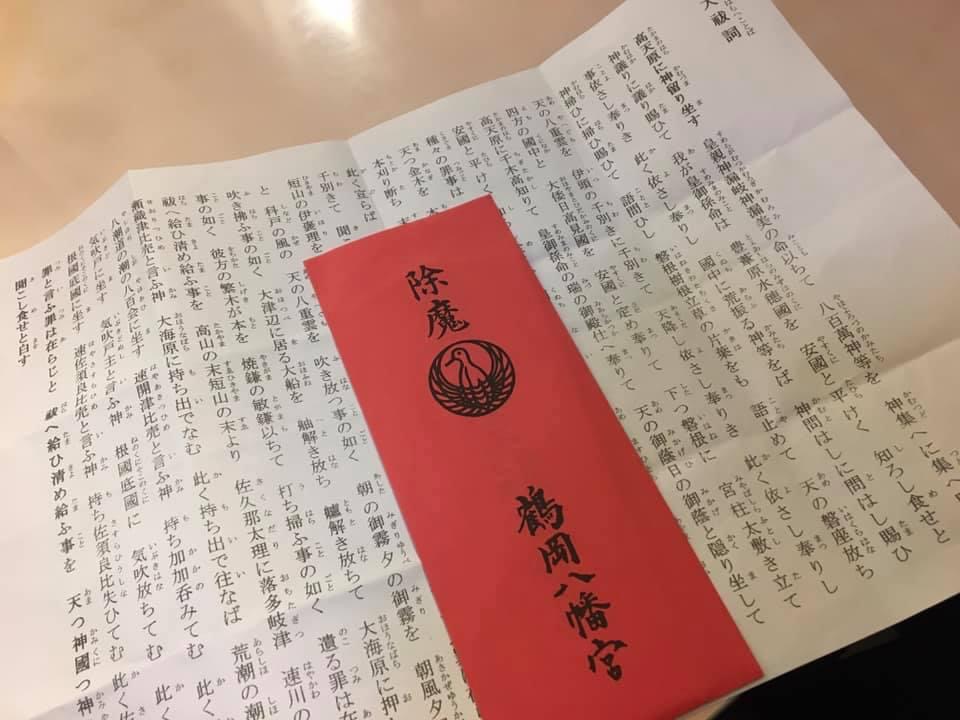 祓詞
高天原に神留り坐す　皇親神漏岐神漏美の命以ちて　八百萬神等を　神集へに集へ
神議りに議り賜ひて　我が皇御孫命は　豊葦原水穂國を　安國と平けく　知ろし食せと
事依さし奉りき　此く依さし奉りし　國中に荒振る神等をば　神問はしに問はし賜ひ
神掃ひに掃ひ賜ひて　語問ひし　磐根樹根立草の片葉をも　語止めて　天の磐座放ち
天の八重雲を　伊頭の千別きに千別きて　天降し依さし奉りき　此く依さし奉りし
四方の國中と　大倭日高見國を　安國と定め奉りて　下つ磐根に　宮柱太敷き立て
高天原に千木高知りて　皇御孫命の瑞の御殿仕へ奉りて　天の御蔭日の御蔭と隠り坐して
安國と平けく
種の罪事は
天つ金木を　本
本刈り断ち　末
此く宣らば
千別きて　聞
短山の伊褒理を
と　科戸の風の　天の八重雲を　吹き放つ事の如く　朝の御霧夕の御霧を　朝風夕
吹き拂ふ事の如く　大津辺に居る大船を　舳解き放ち　艫解き放ちて　大海原に押
事の如く　彼方の繁木が本を　焼鎌の敏鎌以ちて　打ち掃ふ事の如く　遺る罪は在
祓へ給ひ清め給ふ事を　高山の末短山の末より　佐久那太理に落多岐津　速川の
瀬織津比売と言ふ神　大海原に持ち出でなむ　此く持ち出で往なば　荒潮の潮
八潮道の潮の八百会に坐す　速開津比売と言ふ神　持ち加加呑みてむ　此く
気吹戸に坐す　気吹戸主と言ふ神　根國底國に　気吹放ちてむ　此く
根國底國に坐す　速佐須良比売と言ふ神　持ち佐須良比失ひてむ　此く佐
罪と言ふ罪は在らじと　祓へ給ひ清め給ふ事を　天つ神國つ神
聞こし食せと白す
除魔
鶴岡八幡宮